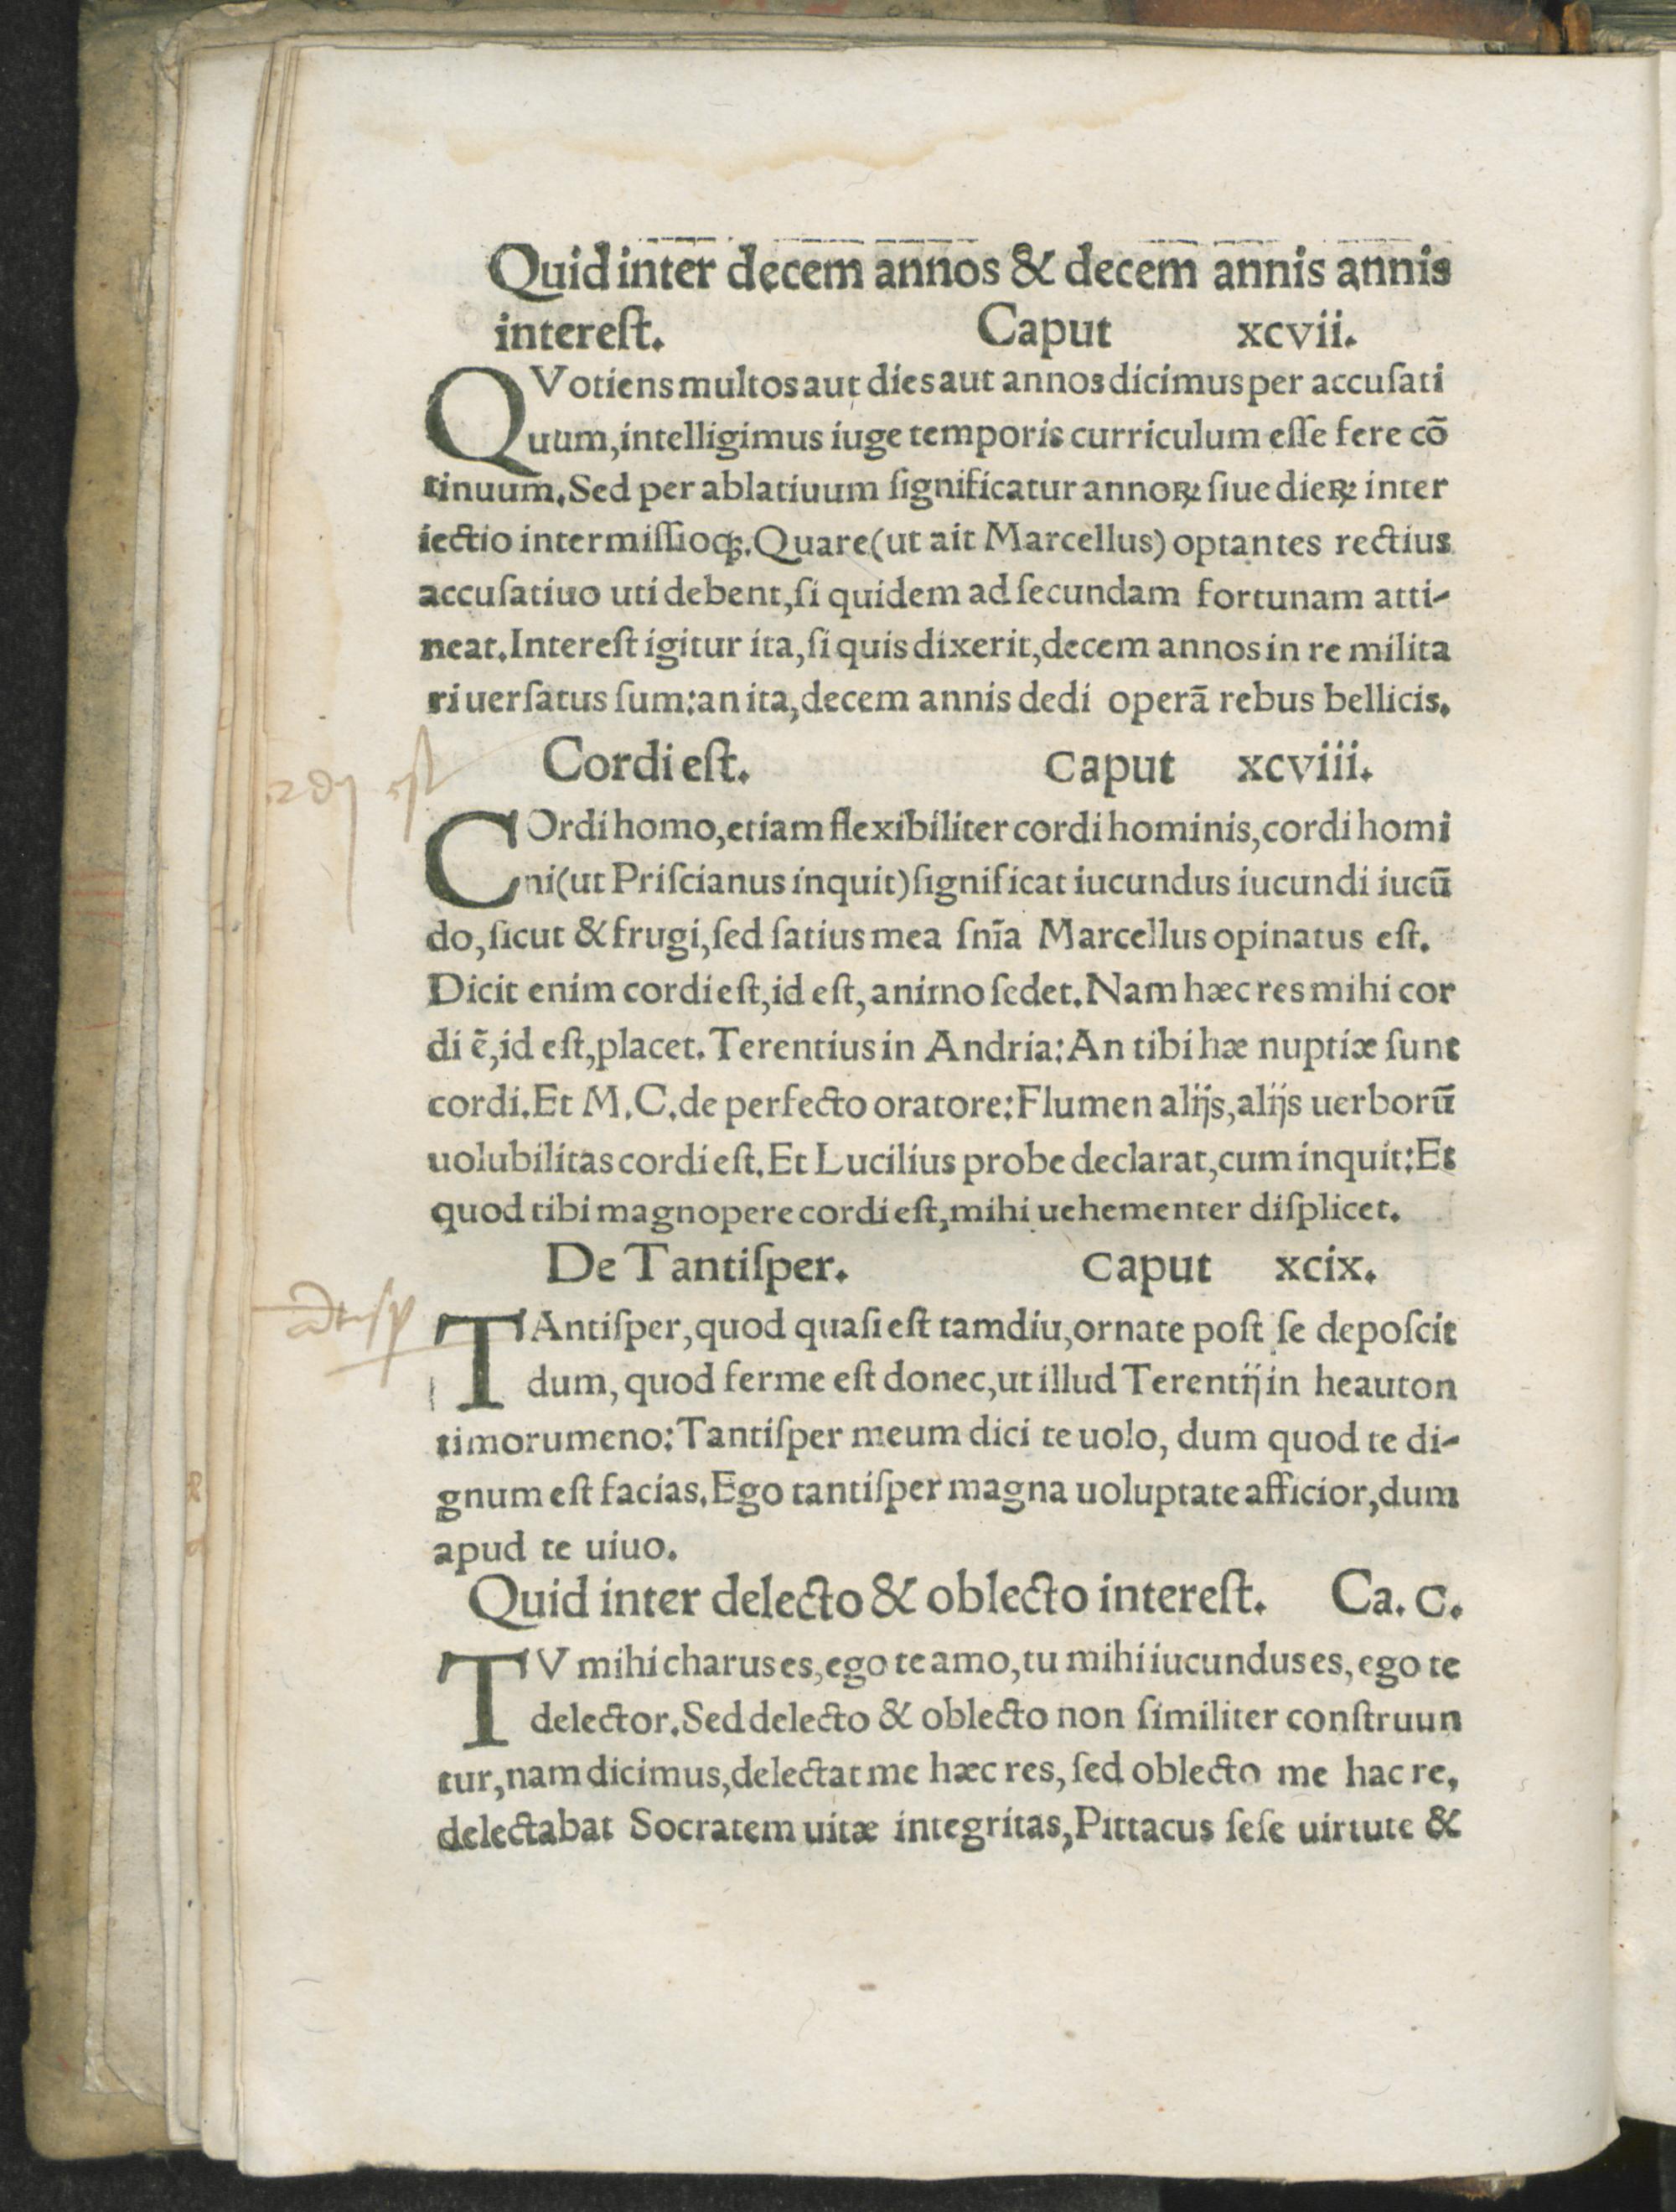 Quid inter decem annos & decem annis annis
intereſt. Caput xcvii.
QVotiens multos aut dies aut annos dicimus per accuſati
uum, intelligimus iuge temporis curriculum eſſe fere cõ
tinuum. Sed per ablatiuum ſignificatur annoꝝ ſiue dieꝝ inter
iectio intermiſſioqꝫ. Quare (ut ait Marcellus) optantes rectius
accuſatiuo uti debent, ſi quidem ad ſecundam fortunam atti-
neat. Intereſt igitur ita, ſi quis dixerit, decem annos in re milita
ri uerſatus ſum: an ita, decem annis dedi operã rebus bellicis.
Cordi eſt. Caput xcviii.
COrdi homo, etiam flexibiliter cordi hominis, cordi homi
ni (ut Priſcianus inquit) ſignificat iucundus iucundi iucũ
do, ſicut & frugi, ſed ſatius mea ſnĩa Marcellus opinatus eſt.
Dicit enim cordi eſt, id eſt, animo ſedet. Nam hæc res mihi cor
di ẽ, id eſt, placet. Terentius in Andria: An tibi hæ nuptiæ ſunt
cordi. Et M. C. de perfecto oratore: Flumen alijs, alijs uerborũ
uolubilitas cordi eſt. Et Lucilius probe declarat, cum inquit: Et
quod tibi magnopere cordi eſt, mihi uehementer diſplicet.
De Tantiſper. Caput xcix.
TAntiſper, quod quaſi eſt tamdiu, ornate poſt ſe depoſcit
dum, quod ferme eſt donec, ut illud Terentij in heauton
timorumeno: Tantiſper meum dici te uolo, dum quod te di-
gnum eſt facias. Ego tantiſper magna uoluptate afficior, dum
apud te uiuo.
Quid inter delecto & oblecto intereſt. Ca. C.
TV mihi charus es, ego te amo, tu mihi iucundus es, ego te
delector. Sed delecto & oblecto non ſimiliter conſtruun
tur, nam dicimus, delectat me hæc res, ſed oblecto me hac re,
delectabat Socratem uitæ integritas, Pittacus ſeſe uirtute &